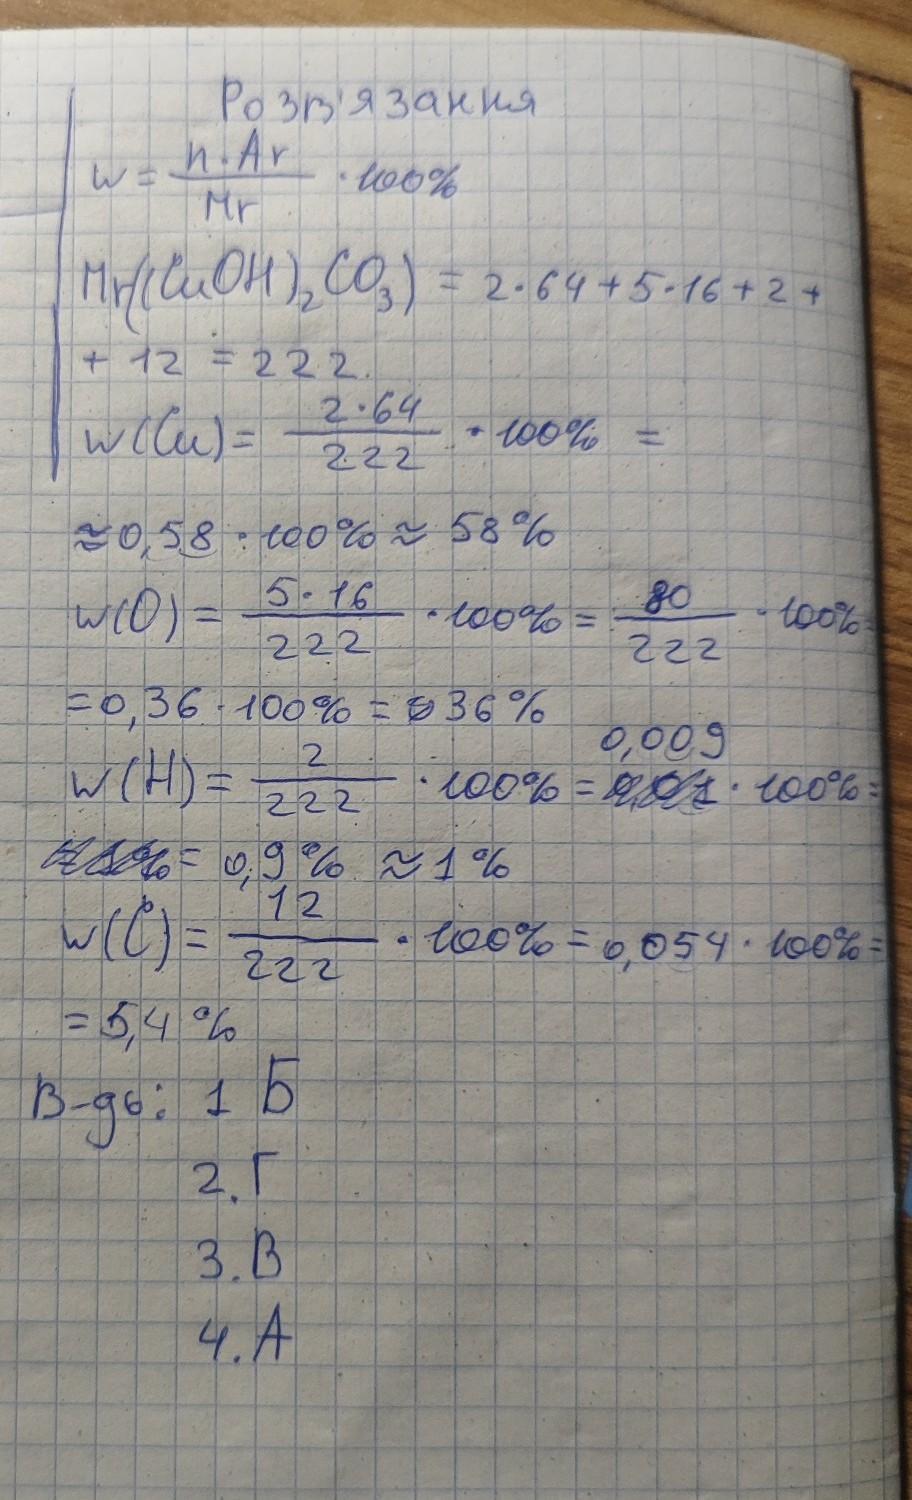 Розв'язання
w = n·Ar / Mr · 100%
Mr((CuOH)₂CO₃) = 2·64+5·16+2+
+ 12 = 222.
w(Cu) = 2·64 / 222 · 100% =
≈ 0,58 · 100% ≈ 58%
w(O) = 5·16 / 222 · 100% = 80 / 222 · 100% =
= 0,36 · 100% = 36%
w(H) = 2 / 222 · 100% = 0,009 · 100% =
= 0,9% ≈ 1%
w(C) = 12 / 222 · 100% = 0,054 · 100% =
= 5,4%
В-дь: 1 Б
2. Г
3. В
4. А